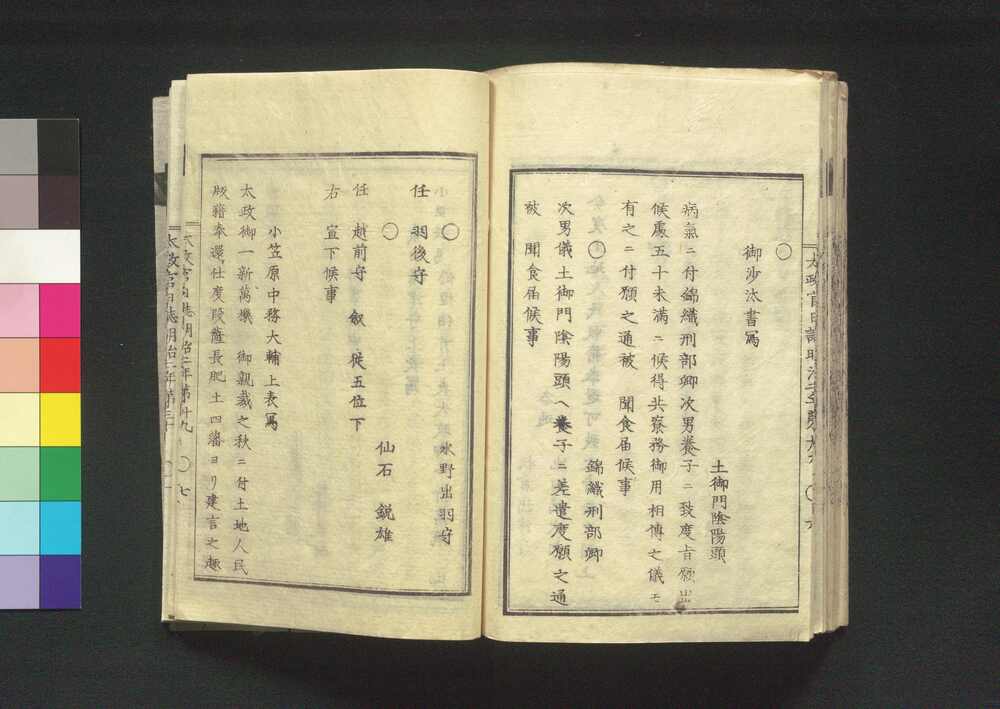 〇
御沙汰書寫
土御門陰陽頭
病氣ニ付錦織刑部卿次男養子ニ致度旨願出
候處五十未滿ニ候得共寮務御用相傳之儀モ
有之ニ付願之通被　聞食届候事
〇　錦織刑部卿
次男儀土御門陰陽頭ヘ養子ニ差遣度願之通
被　聞食届候事
〇　水野出羽守
任　羽後守
〇　仙石　鋭雄
任　越前守　敘　從五位下
右　宣下候事
小笠原中務大輔上表寫
太政御一新萬機　御親裁之秋ニ付土地人民
版籍奉還仕度段薩長肥土四藩ヨリ建言之趣
太政官日誌明治二年第廿九　〇七
太政官日誌明治二年第三十